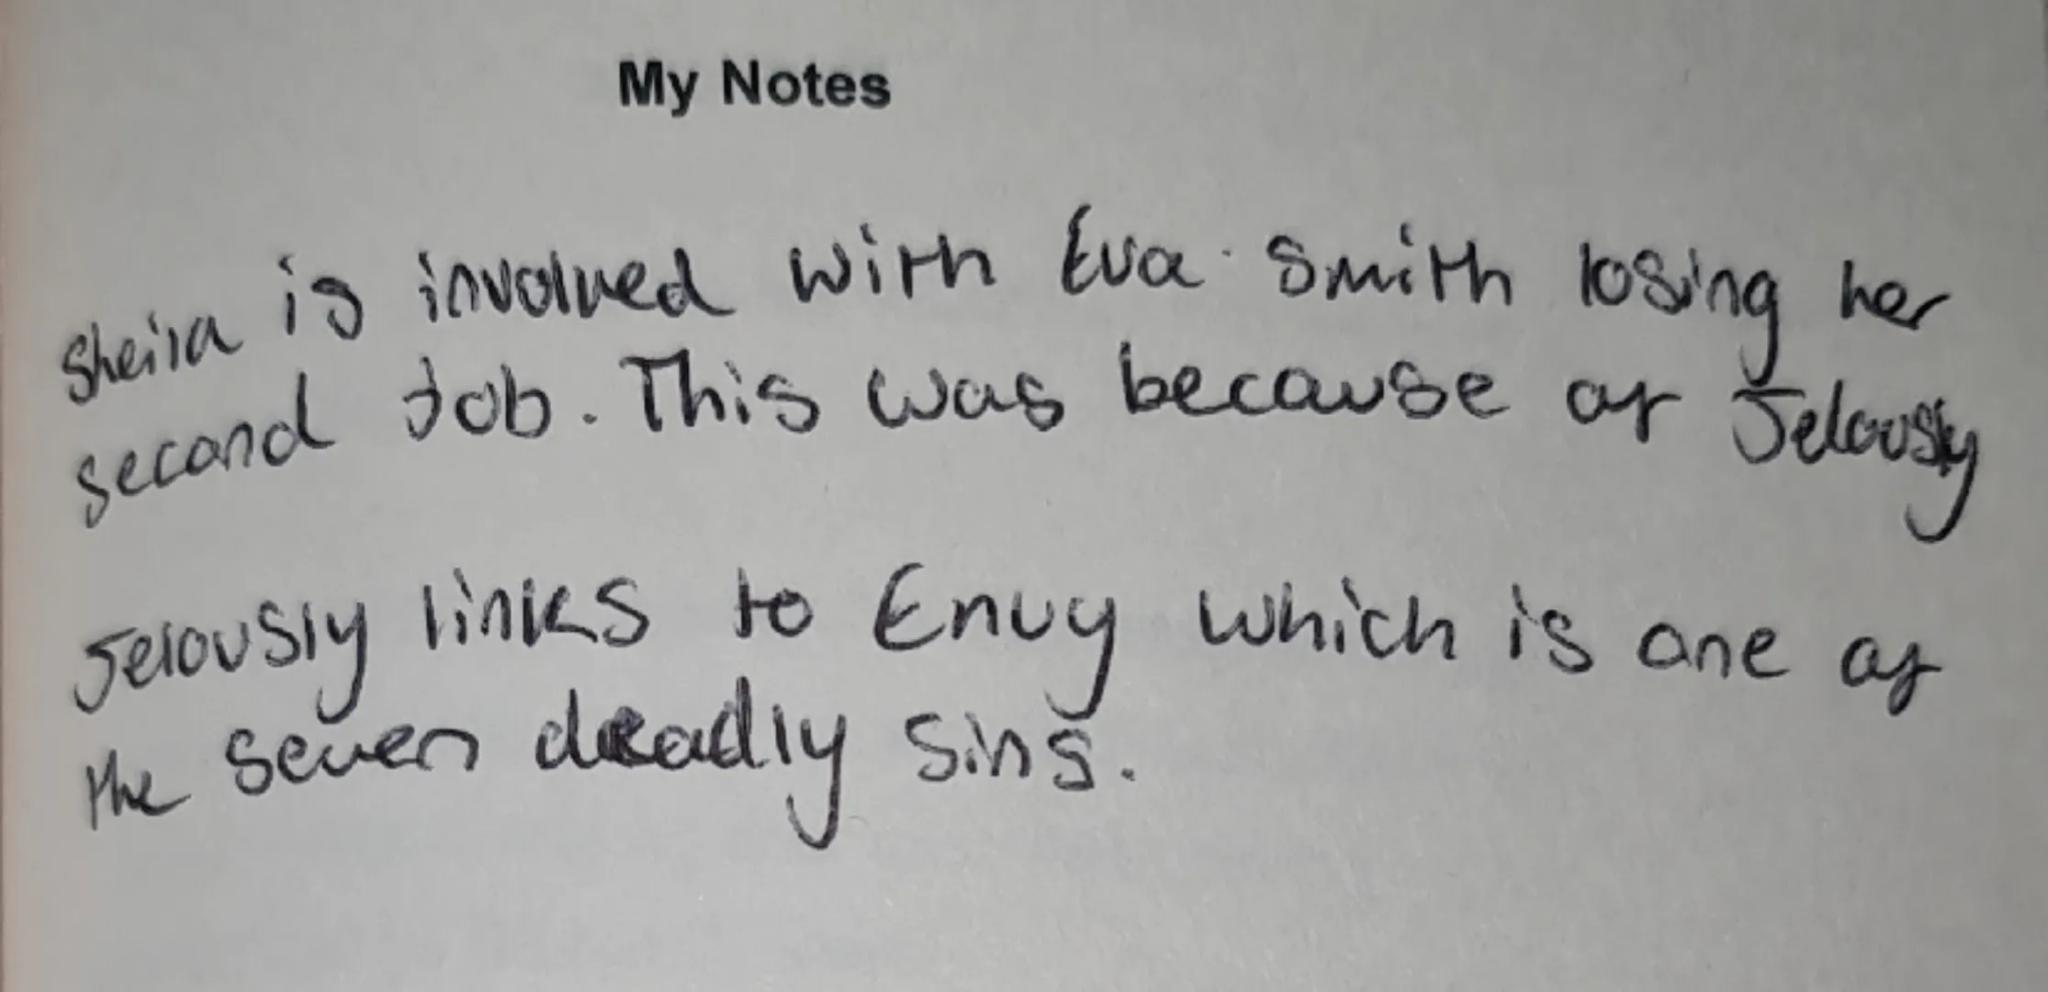 My Notes
Sheila is involved with Eva Smith losing her
second Job. This was because of Jelously
Jelously links to Envy which is one of
the seven deadly sins.